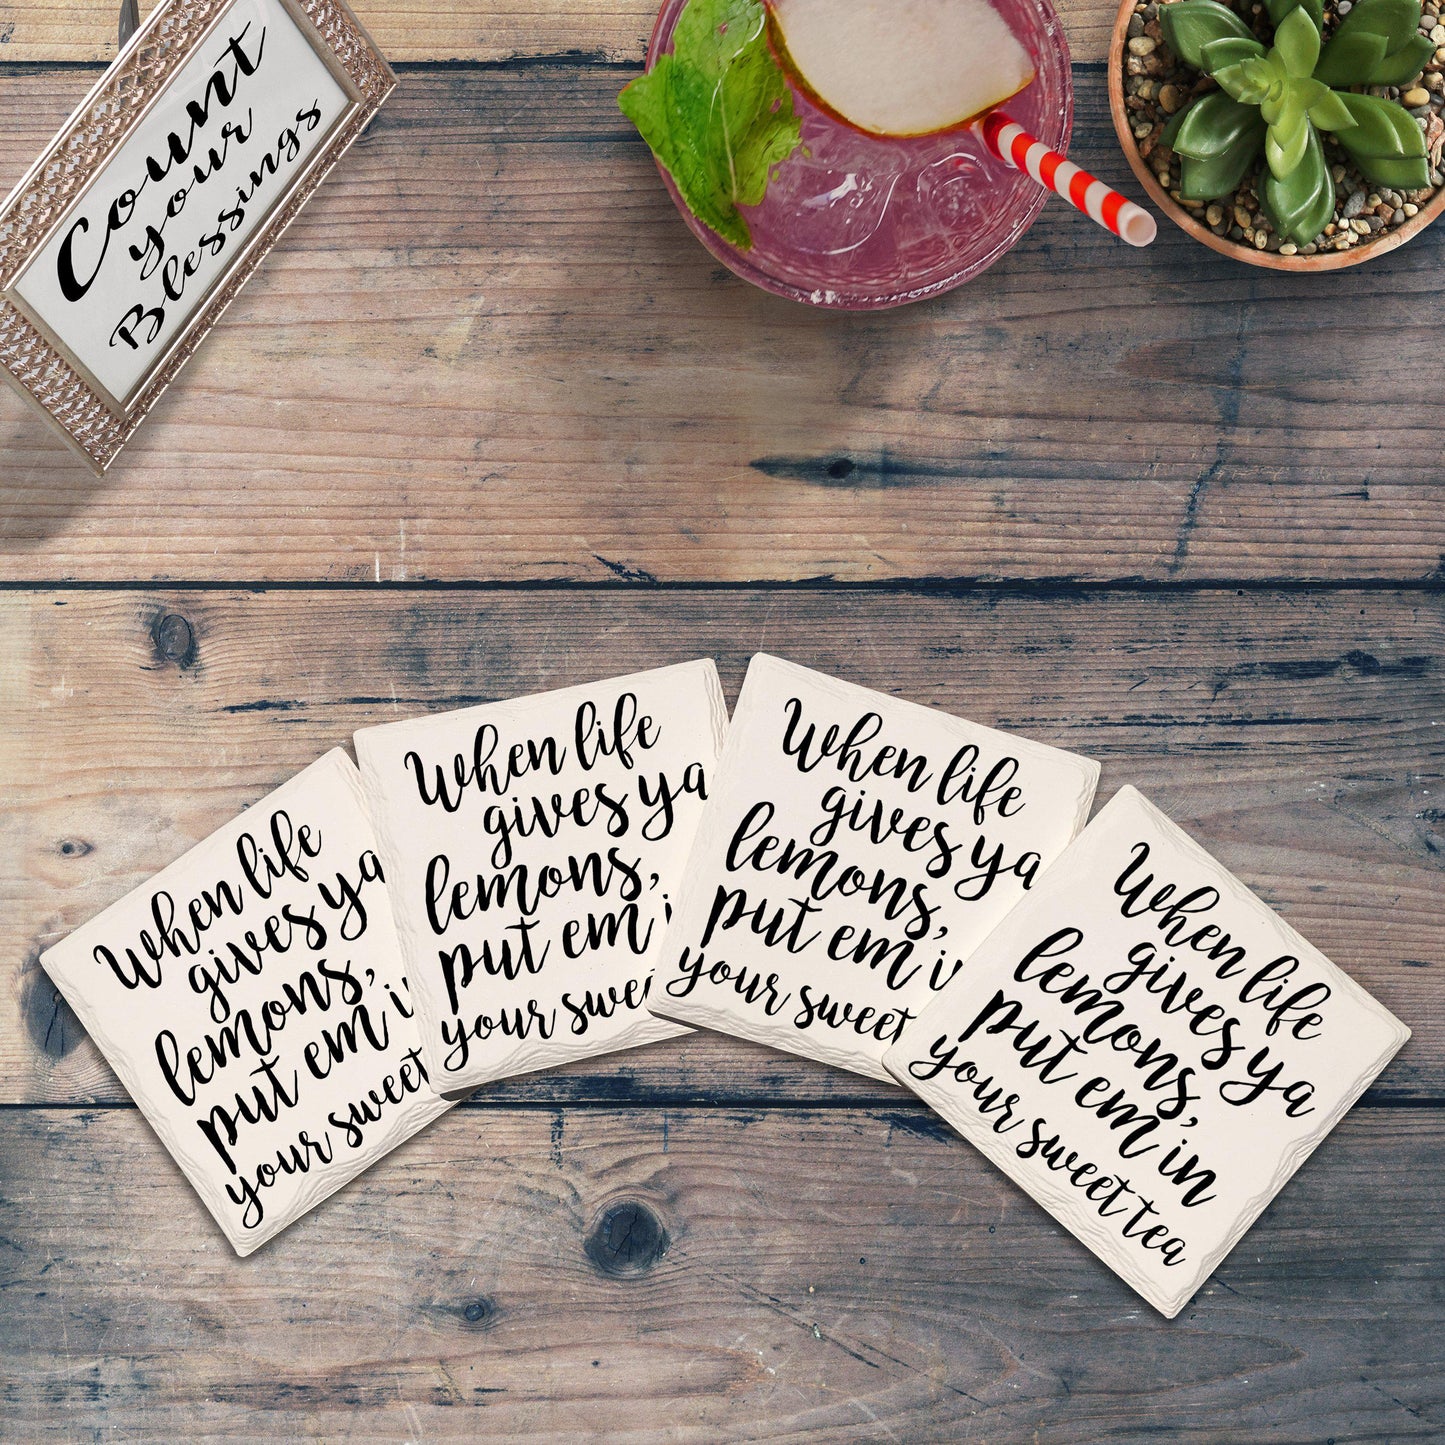 Count
your
Blessings
When life
gives ya
lemons,
put em i
your sweet
When life
gives ya
lemons,
put em i
your swee
When life
gives ya
lemons,
put em i
your sweet
When life
gives ya
lemons,
put em in
your sweet tea